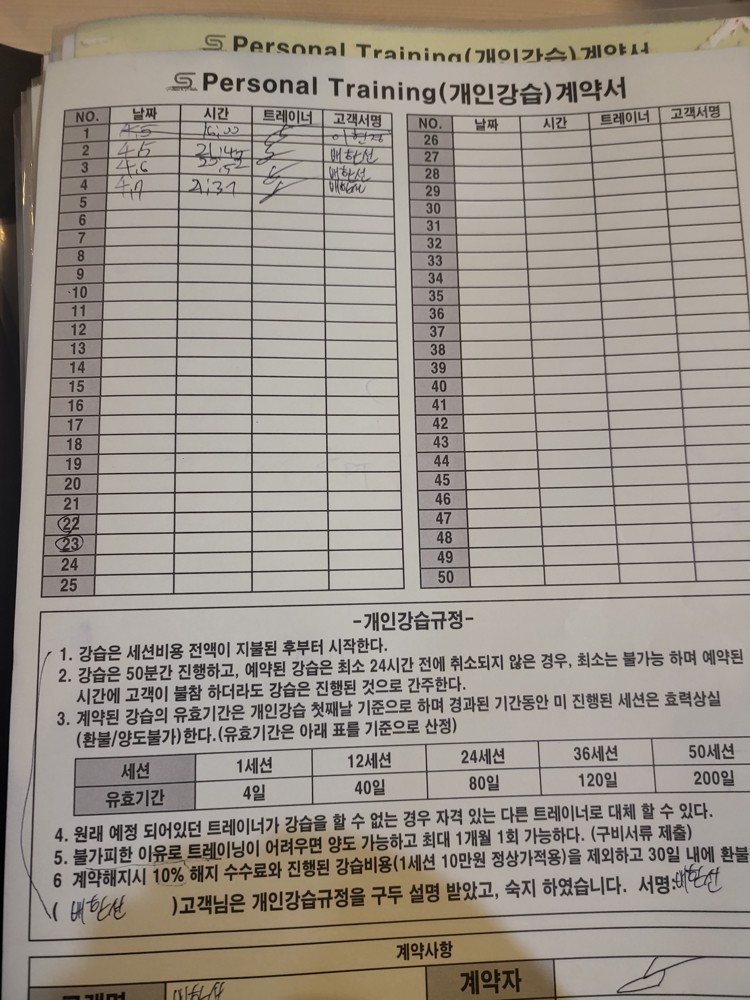 Personal Training(개인강습)계약서
Personal Training(개인강습)계약서
NO. 날짜 시간 트레이너 고객서명 NO. 날짜 시간 트레이너 고객서명
1 4.5 16:00 26
2 4.5 배한선 27
3 4.6 배한선 28
4 4.7 21:37 배한선 29
5 30
6 31
7 32
8 33
9 34
10 35
11 36
12 37
13 38
14 39
15 40
16 41
17 42
18 43
19 44
20 45
21 46
22 47
23 48
24 49
25 50
-개인강습규정-
1. 강습은 세션비용 전액이 지불된 후부터 시작한다.
2. 강습은 50분간 진행하고, 예약된 강습은 최소 24시간 전에 취소되지 않은 경우, 최소는 불가능 하며 예약된
시간에 고객이 불참 하더라도 강습은 진행된 것으로 간주한다.
3. 계약된 강습의 유효기간은 개인강습 첫째날 기준으로 하며 경과된 기간동안 미 진행된 세션은 효력상실
(환불/양도불가)한다.(유효기간은 아래 표를 기준으로 산정)
세션 1세션 12세션 24세션 36세션 50세션
유효기간 4일 40일 80일 120일 200일
4. 원래 예정 되어있던 트레이너가 강습을 할 수 없는 경우 자격 있는 다른 트레이너로 대체 할 수 있다.
5. 불가피한 이유로 트레이닝이 어려우면 양도 가능하고 최대 1개월 1회 가능하다. (구비서류 제출)
6 계약해지시 10% 해지 수수료와 진행된 강습비용(1세션 10만원 정상가적용)을 제외하고 30일 내에 환불
( 배한선 )고객님은 개인강습규정을 구두 설명 받았고, 숙지 하였습니다. 서명:배한선
계약사항
고객명 계약자